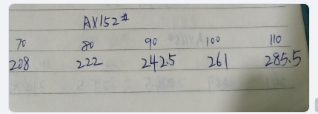 AV152#
70 80 90 100 110
208 222 242.5 261 285.5